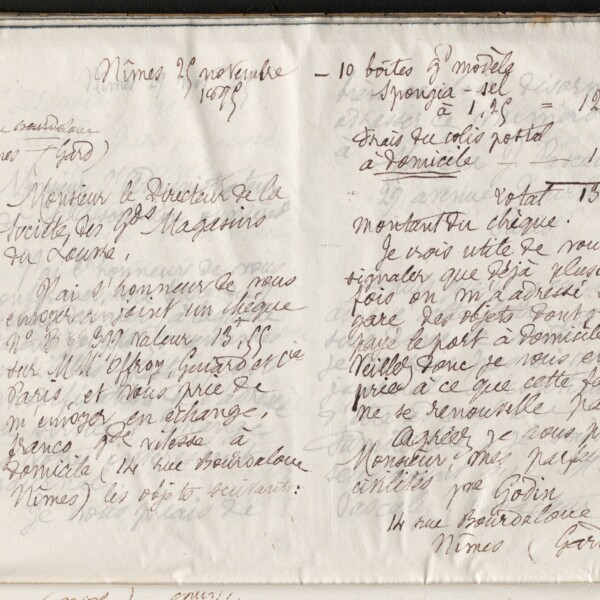 Nîmes 25 novembre
1895
rue Bourdaloue
Nîmes (Gard)
Monsieur le Directeur de la
Société des Gds Magasins
du Louvre,
J'ai l'honneur de vous
envoyer ci-joint un chèque
valeur 13,55
sur M Offroy Guiard et Cie
Paris, et vous prie de
m'envoyer en échange,
franco gde vitesse à
domicile (14 rue Bourdaloue
Nîmes) les objets suivants:
- 10 boîtes gd modèle
Spongia-sel
à 1,25 = 12
Frais du colis postal
à domicile - - 1
total 13
montant du chèque.
Je crois utile de vou
signaler que déjà plusi
fois on m'a adressé
gare des objets dont j'
payé le port à domicil
Veillez donc je vous en
prie à ce que cette fo
ne se renouvelle pa
Agréez je vous p
Monsieur, mes parfai
civilités
Godin
14 rue Bourdaloue
Nîmes (Gard